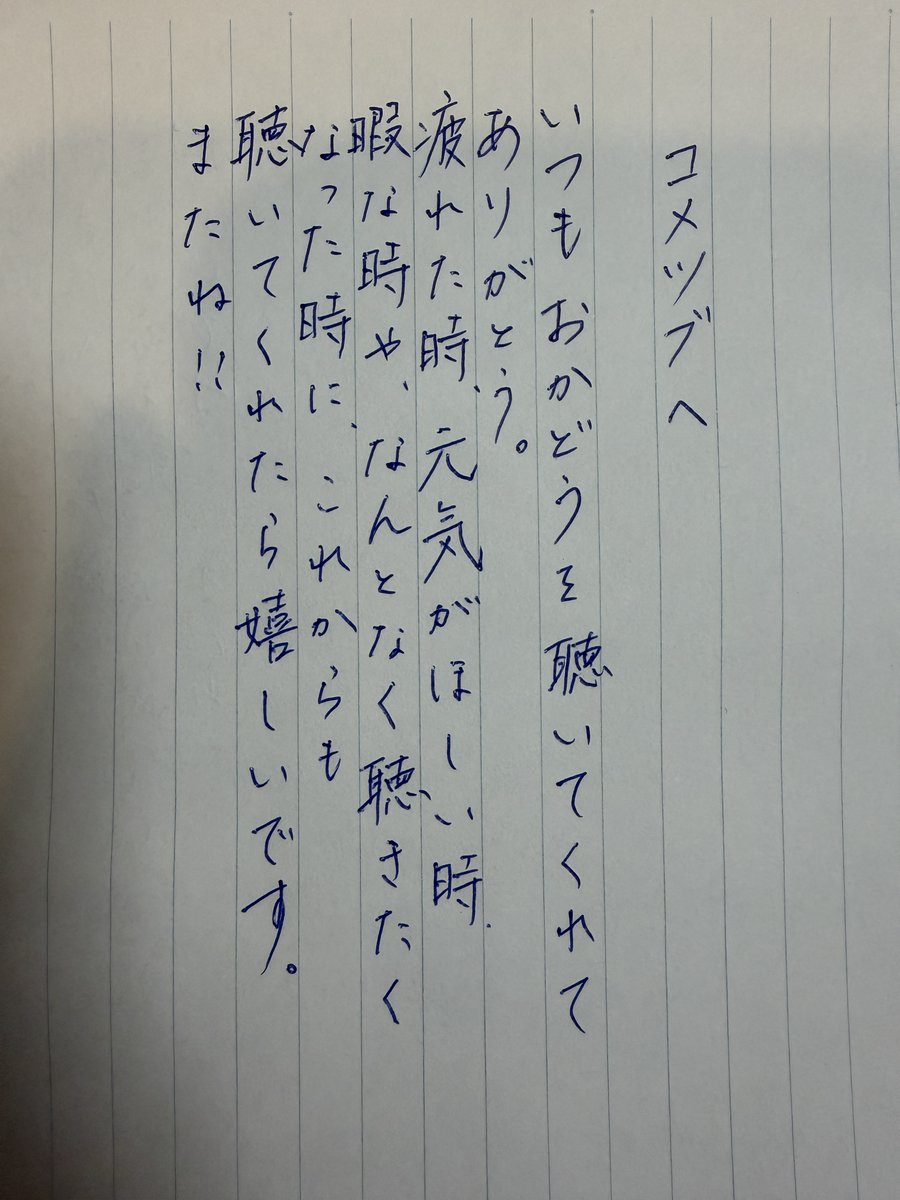 コメツブへ
いつもおかどうを聴いてくれて
ありがとう。
疲れた時、元気がほしい時、
暇な時や、なんとなく聴きたく
なった時に、これからも
聴いてくれたら嬉しいです。
またね!!